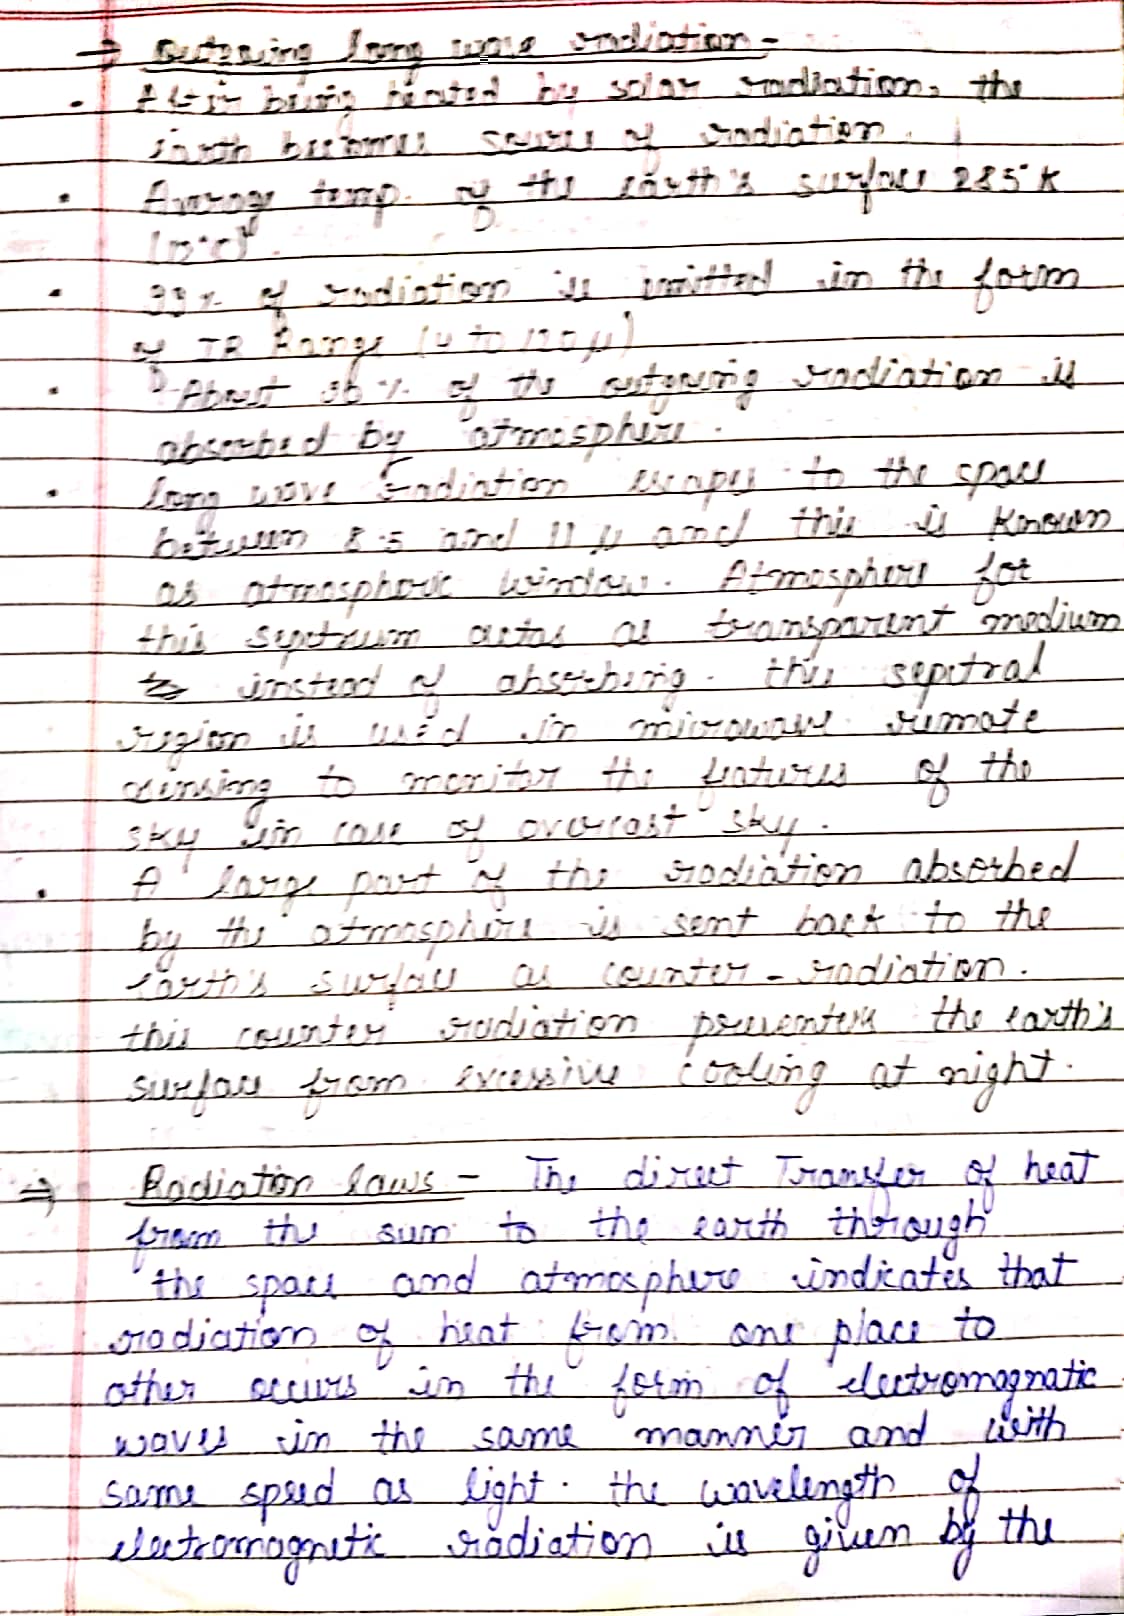 → Outgoing long wave radiation -
• After being heated by solar radiation, the
earth becomes source of radiation.
• Average temp. of the earth's surface 285°K
(12°C).
• 99% of radiation is emitted in the form
of IR Range (4 to 120 μ)
• About 90% of the outgoing radiation is
absorbed by atmosphere.
• long wave radiation escapes to the space
between 8.5 and 11 μ and this is known
as atmospheric window. Atmosphere for
this septrum actas as transparent medium
instead of absorbing. this septral
region is used in microwave remote
sensing to monitor the features of the
sky in case of overcast sky.
• A large part of the radiation absorbed
by the atmosphere is sent back to the
earth's surface as counter-radiation.
this counter radiation preventers the earth's
surface from excessive cooling at night.
⇒ Radiation laws - The direct Transfer of heat
from the sun to the earth through
the space and atmosphere indicates that
radiation of heat from one place to
other occurs in the form of electromagnatic
waves in the same manner and with
same speed as light. the wavelength of
electromagnetic radiation is given by the